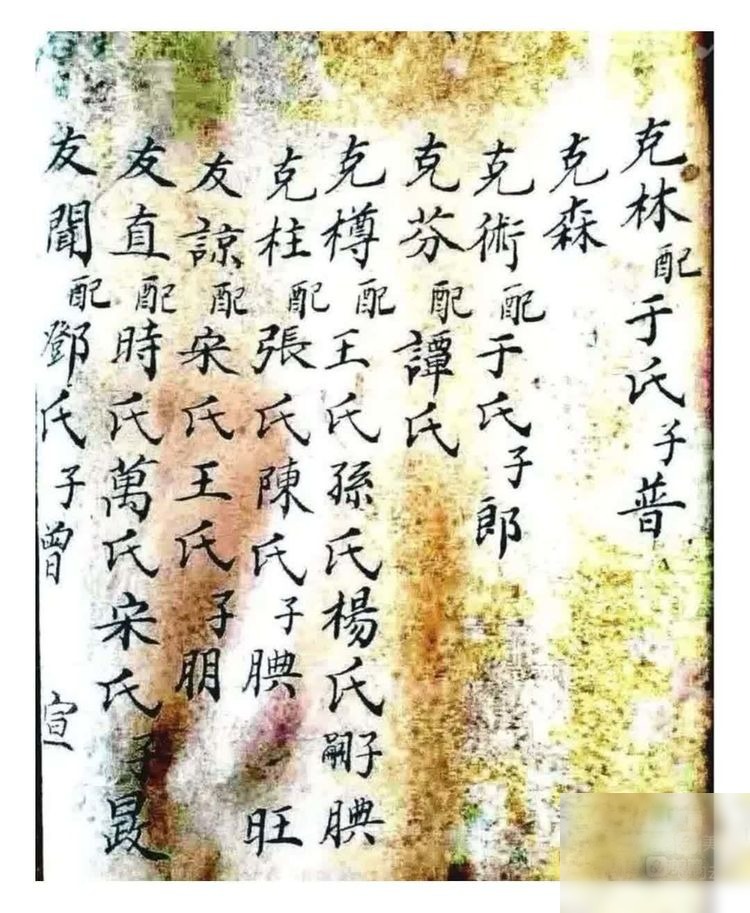 克林配于氏子普
克森
克術配于氏子郎
克芬配譚氏
克樽配王氏孫氏楊氏嗣子腆
克柱配張氏陳氏子腆 旺
友諒配宋氏王氏子朋
友直配時氏萬氏宋氏子
友聞配鄧氏子曾 宣